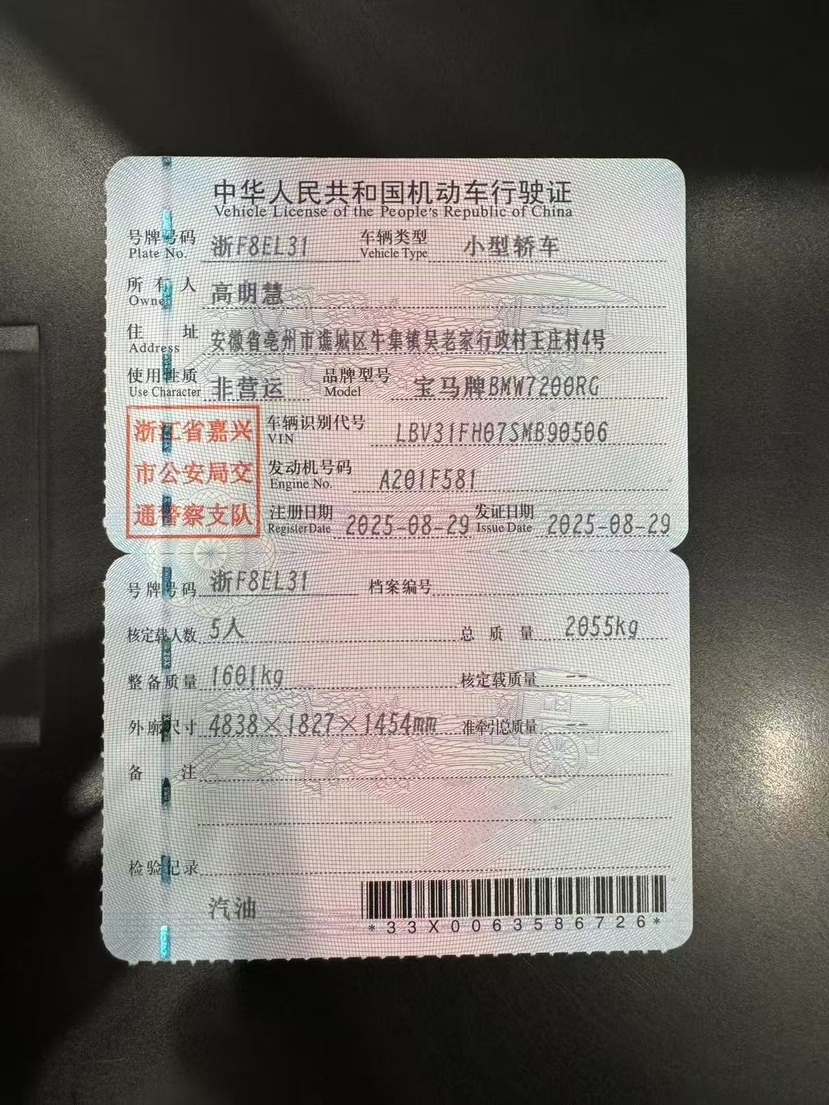 中华人民共和国机动车行驶证
Vehicle License of the People's Republic of China
号牌号码 浙F8EL31 车辆类型 小型轿车
Plate No. Vehicle Type
所有人 高明慧
Owner
住址 安徽省亳州市谯城区牛集镇吴老家行政村王庄村4号
Address
使用性质 非营运 品牌型号 宝马牌BMW7200RG
Use Character Model
浙江省嘉兴
市公安局交
通警察支队
车辆识别代号 LBV31FH07SMB90506
VIN
发动机号码 A201F581
Engine No.
注册日期 2025-08-29 发证日期 2025-08-29
Register Date Issue Date
号牌号码 浙F8EL31 档案编号
核定载人数 5人 总质量 2055kg
整备质量 1601kg 核定载质量 --
外廓尺寸 4838×1827×1454mm 准牵引总质量 --
备注
检验记录
汽油
*33X0063586726*